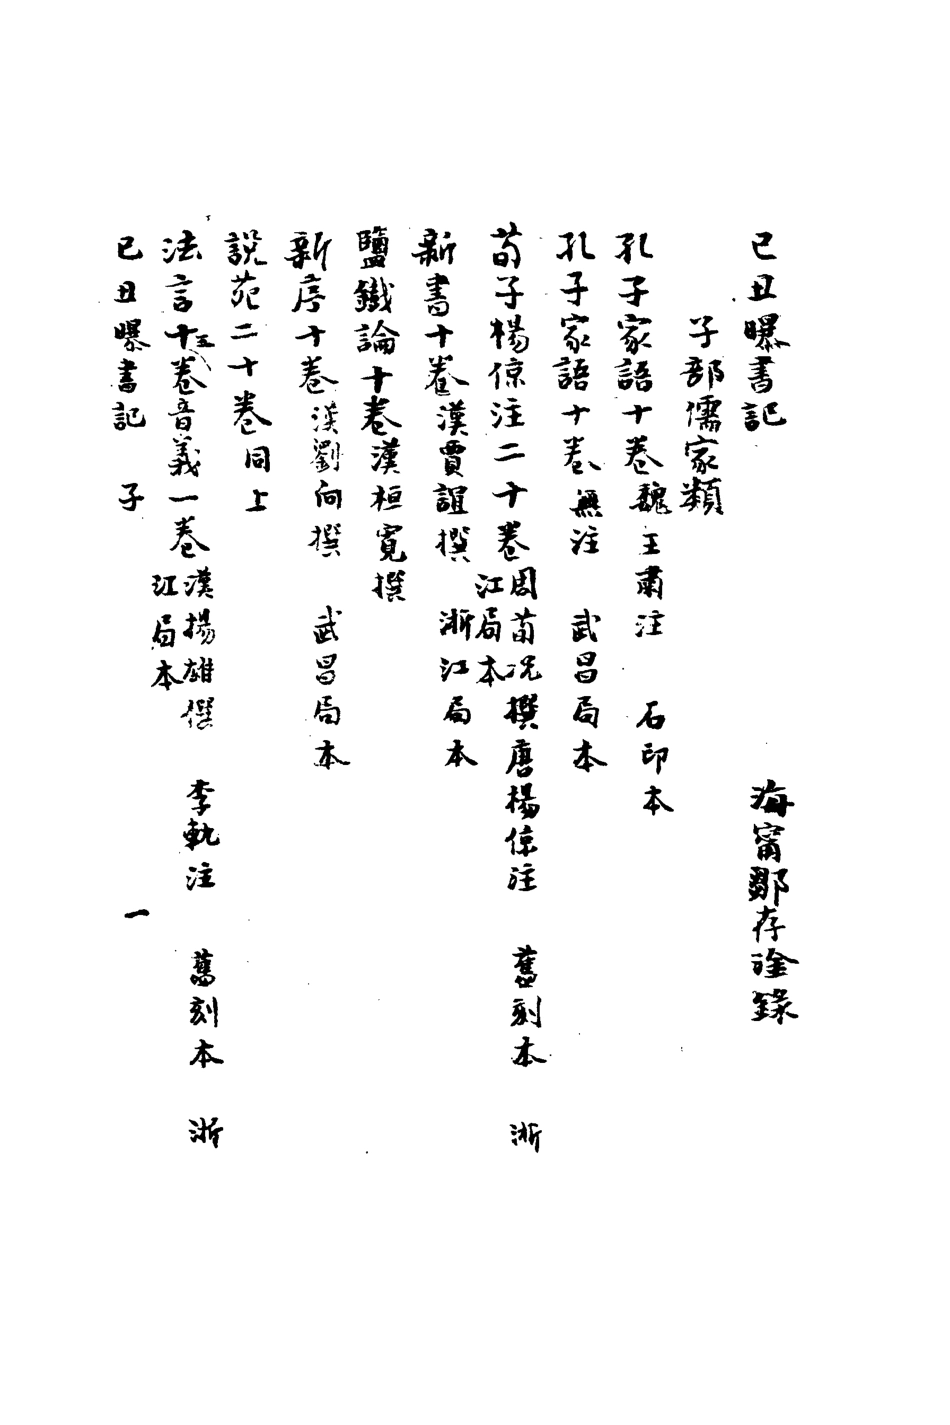 己丑曝書記　　　海甯鄒存淦錄
子部儒家類
孔子家語十卷魏王肅注　石印本
孔子家語十卷無注　武昌局本
荀子楊倞注二十卷周荀況撰唐楊倞注　舊刻本　浙
江局本
新書十卷漢賈誼撰　浙江局本
鹽鐵論十卷漢桓寬撰
新序十卷漢劉向撰　武昌局本
說苑二十卷同上
法言十五卷音義一卷漢揚雄撰　李軌注　舊刻本　浙
江局本
己丑曝書記　子　一